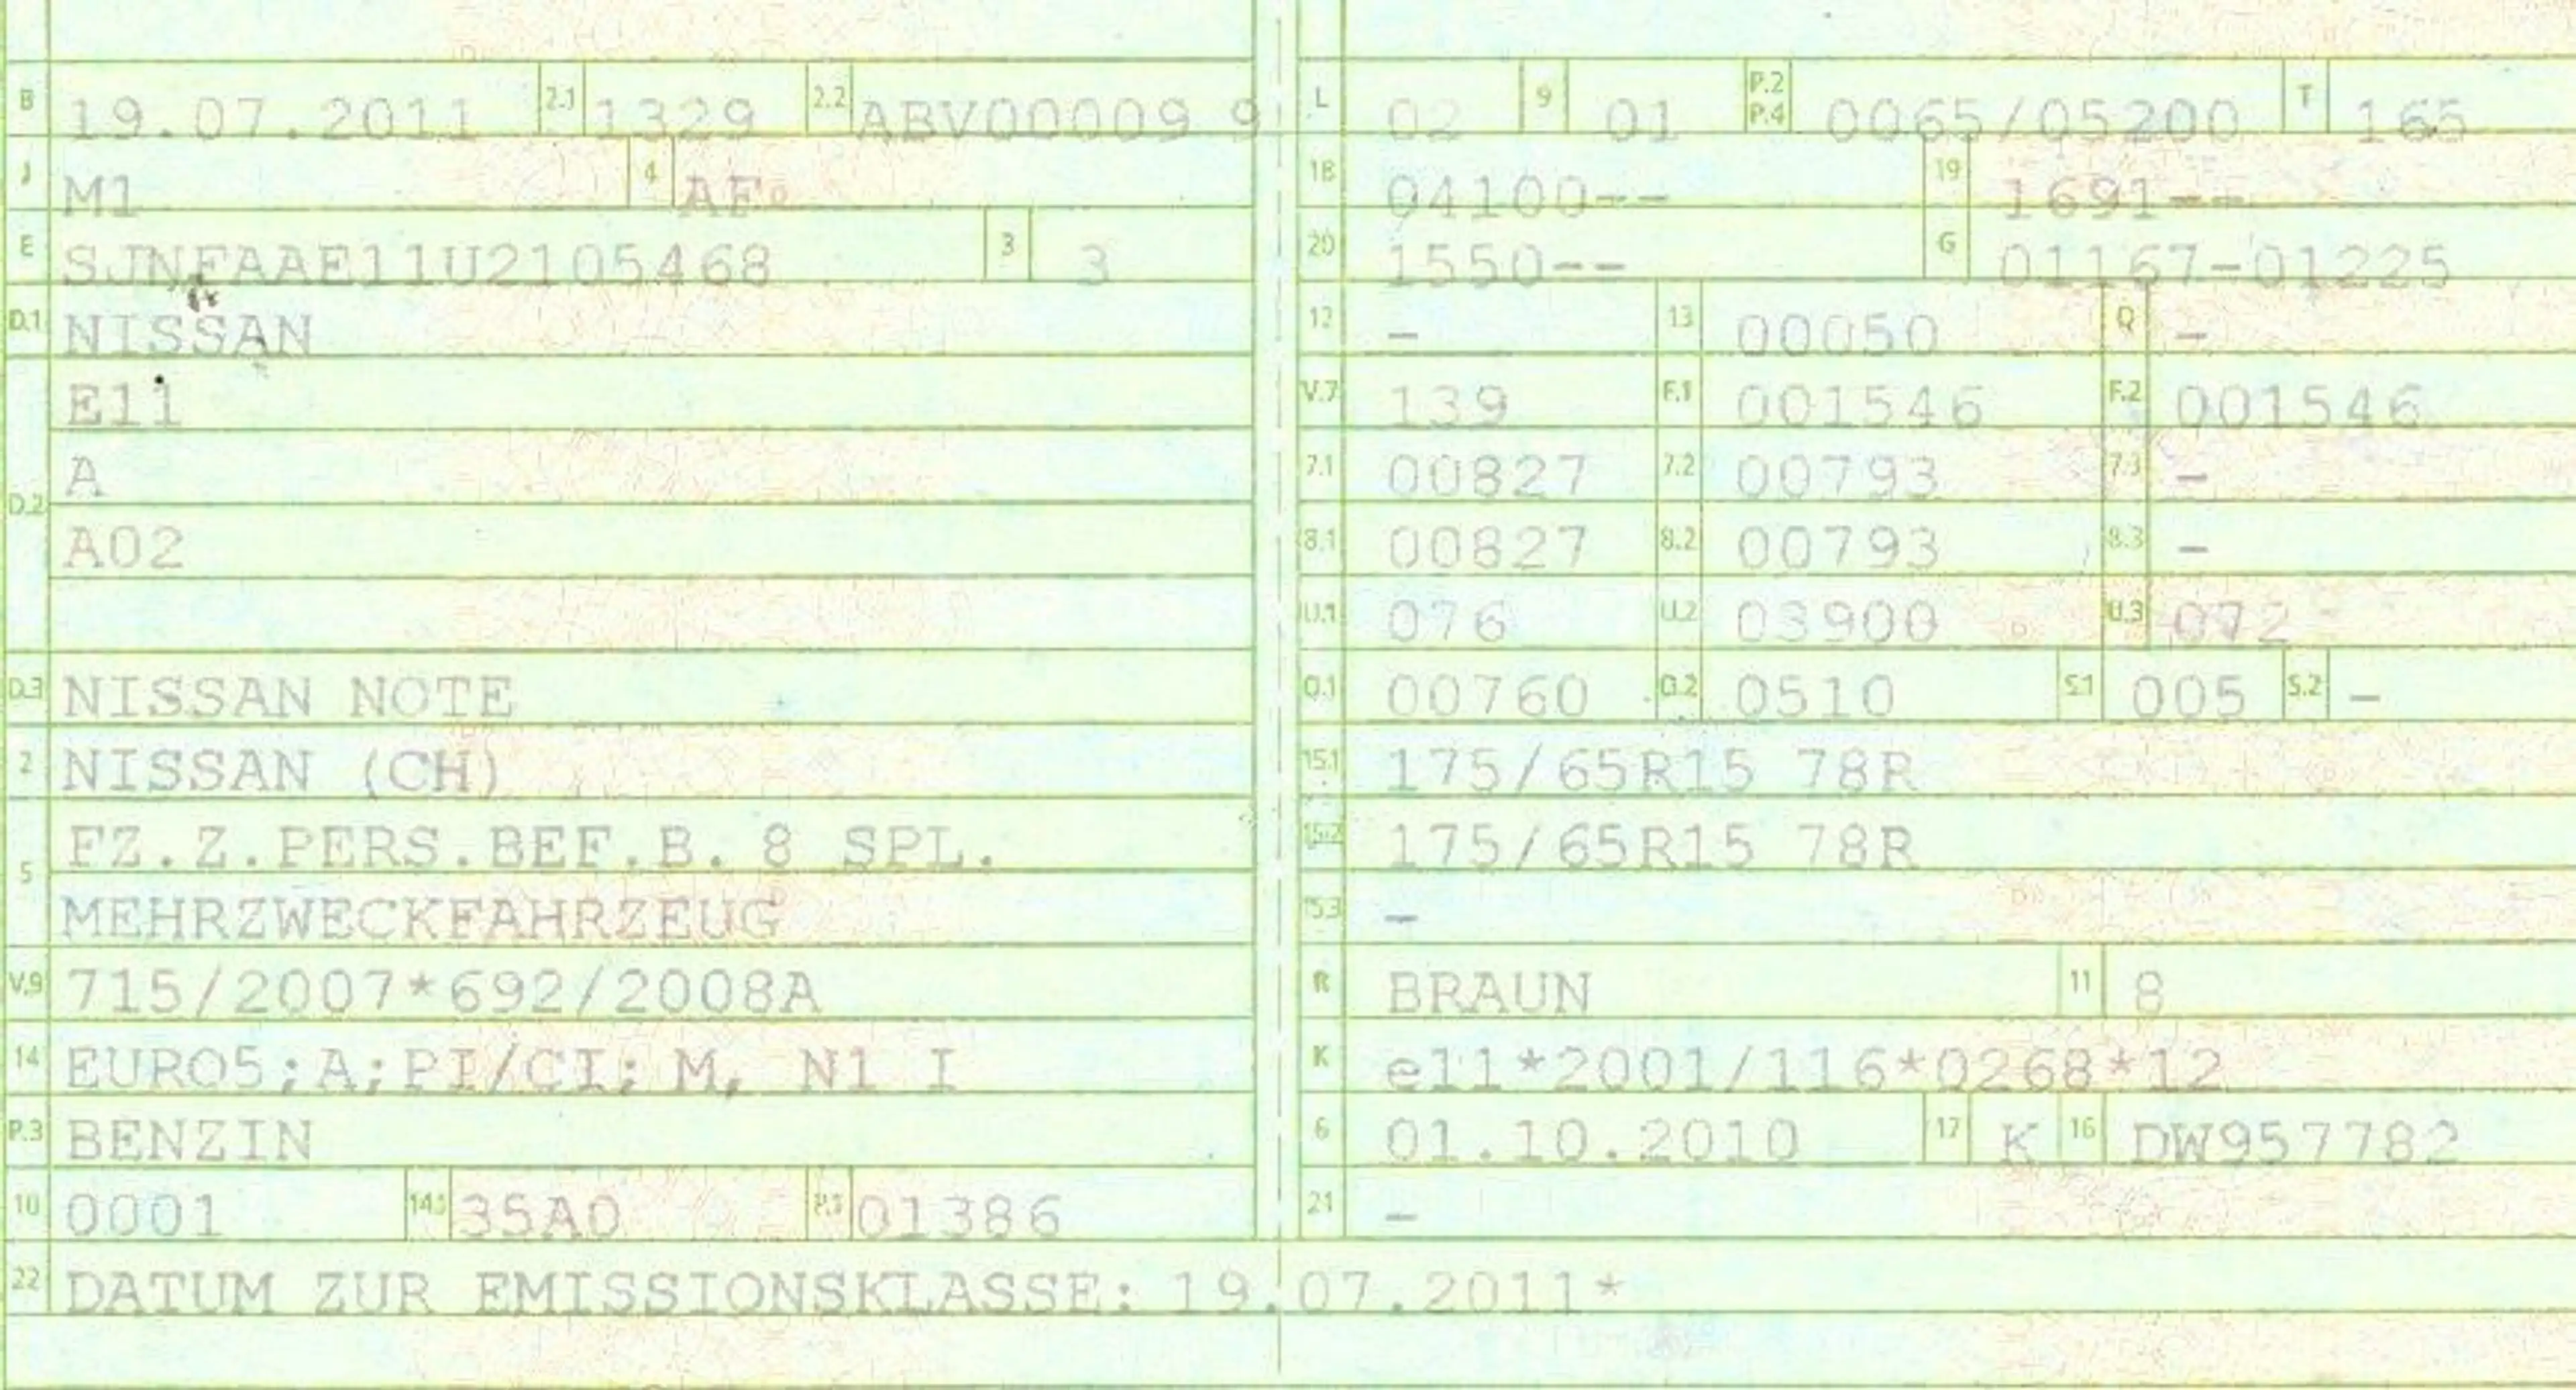 B 19.07.2011 2.1 1329 2.2 ABV00009 9
J M1 4 AF
E SJNFAAE11U2105468 3 3
D.1 NISSAN
E11
A
D.2
A02
D.3 NISSAN NOTE
2 NISSAN (CH)
FZ.Z.PERS.BEF.B. 8 SPL.
5
MEHRZWECKFAHRZEUG
V.9 715/2007*692/2008A
14 EURO5;A;PI/CI; M, N1 I
P.3 BENZIN
10 0001 14.1 35A0 P.1 01386
22 DATUM ZUR EMISSIONSKLASSE: 19.07.2011*
L 02 9 01 P.2 P.4 0065/05200 T 165
18 04100-- 19 1691--
20 1550-- G 01167-01225
12 - 13 00050 Q -
V.7 139 F.1 001546 F.2 001546
7.1 00827 7.2 00793 7.3 -
8.1 00827 8.2 00793 8.3 -
U.1 076 U.2 03900 U.3 072
O.1 00760 O.2 0510 S.1 005 S.2 -
15.1 175/65R15 78R
15.2 175/65R15 78R
15.3 -
R BRAUN 11 8
K e11*2001/116*0268*12
6 01.10.2010 17 K 16 DW957782
21 -